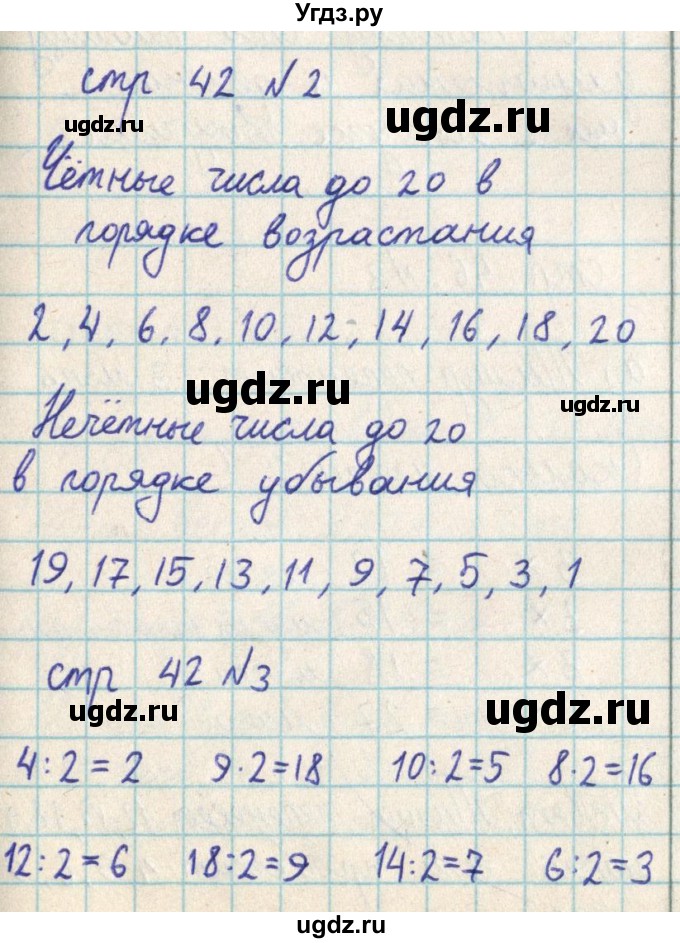 Угдз.ру
стр 42 №2
ugdz.ru
ugdz.ru
Чётные числа до 20 в
порядке возрастания
2, 4, 6, 8, 10, 12, 14, 16, 18, 20
ugdz.ru
ugdz.ru
Нечётные числа до 20
в порядке убывания
19, 17, 15, 13, 11, 9, 7, 5, 3, 1
стр 42 №3
ugdz.ru
ugdz.ru
4:2=2 9·2=18 10:2=5 8·2=16
12:2=6 18:2=9 14:2=7 6:2=3
ugdz.ru